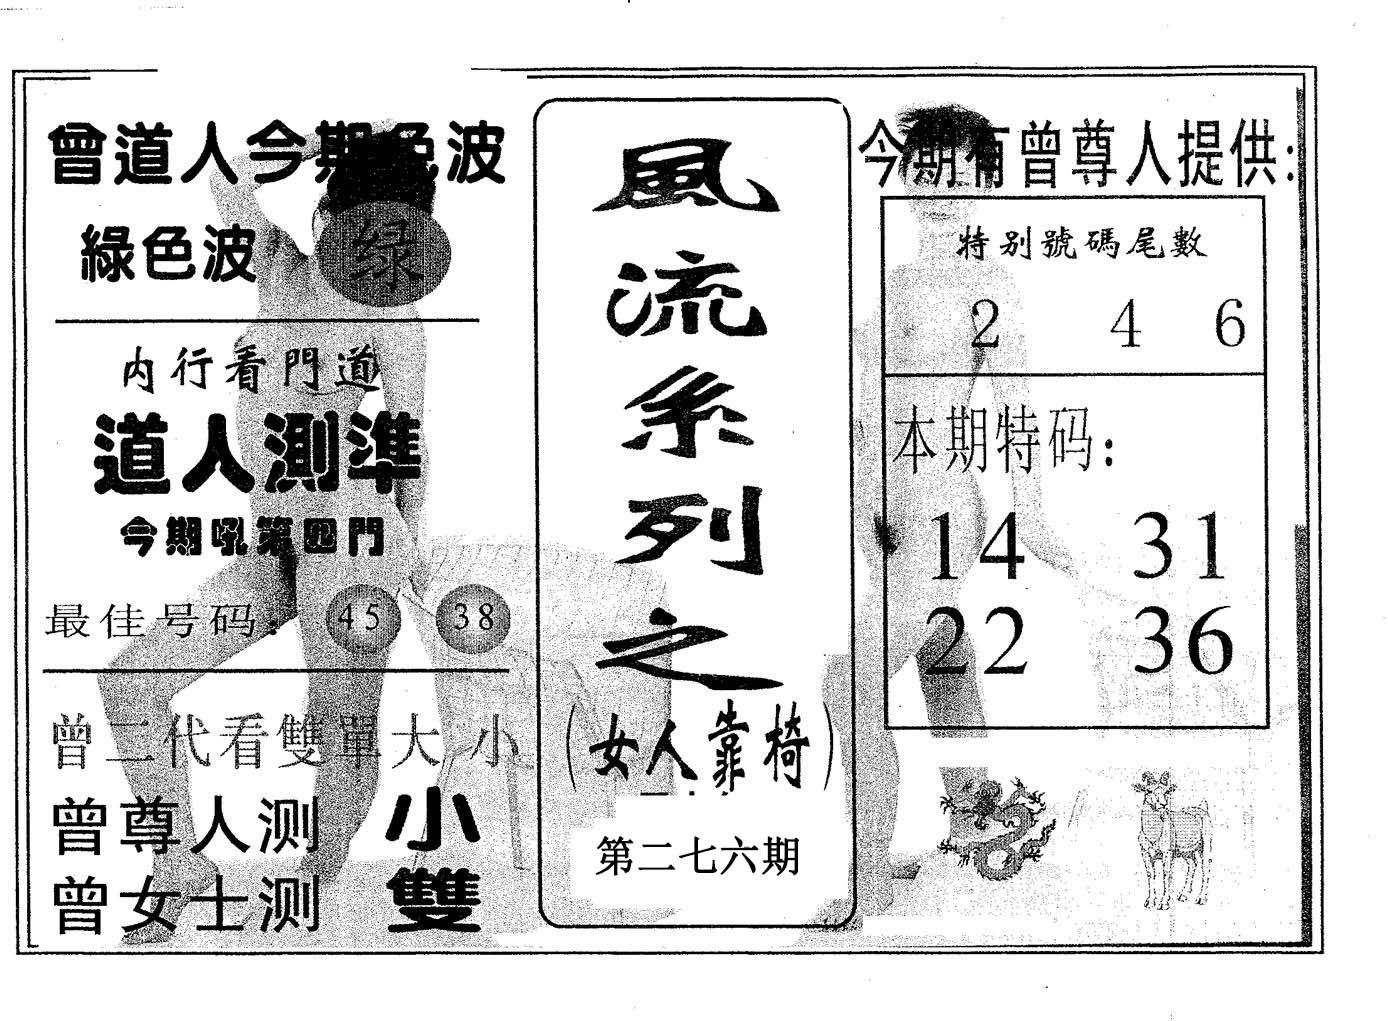 曾道人今期色波
綠色波
绿
内行看門道
道人測準
今期吼第四門
最佳号码：
45 38
曾二代看雙單大小
曾尊人测 小
曾女士测 雙
風流系列之
（女人靠椅）
第二七六期
今期有曾尊人提供：
特别號碼尾數
2 4 6
本期特码：
14 31
22 36